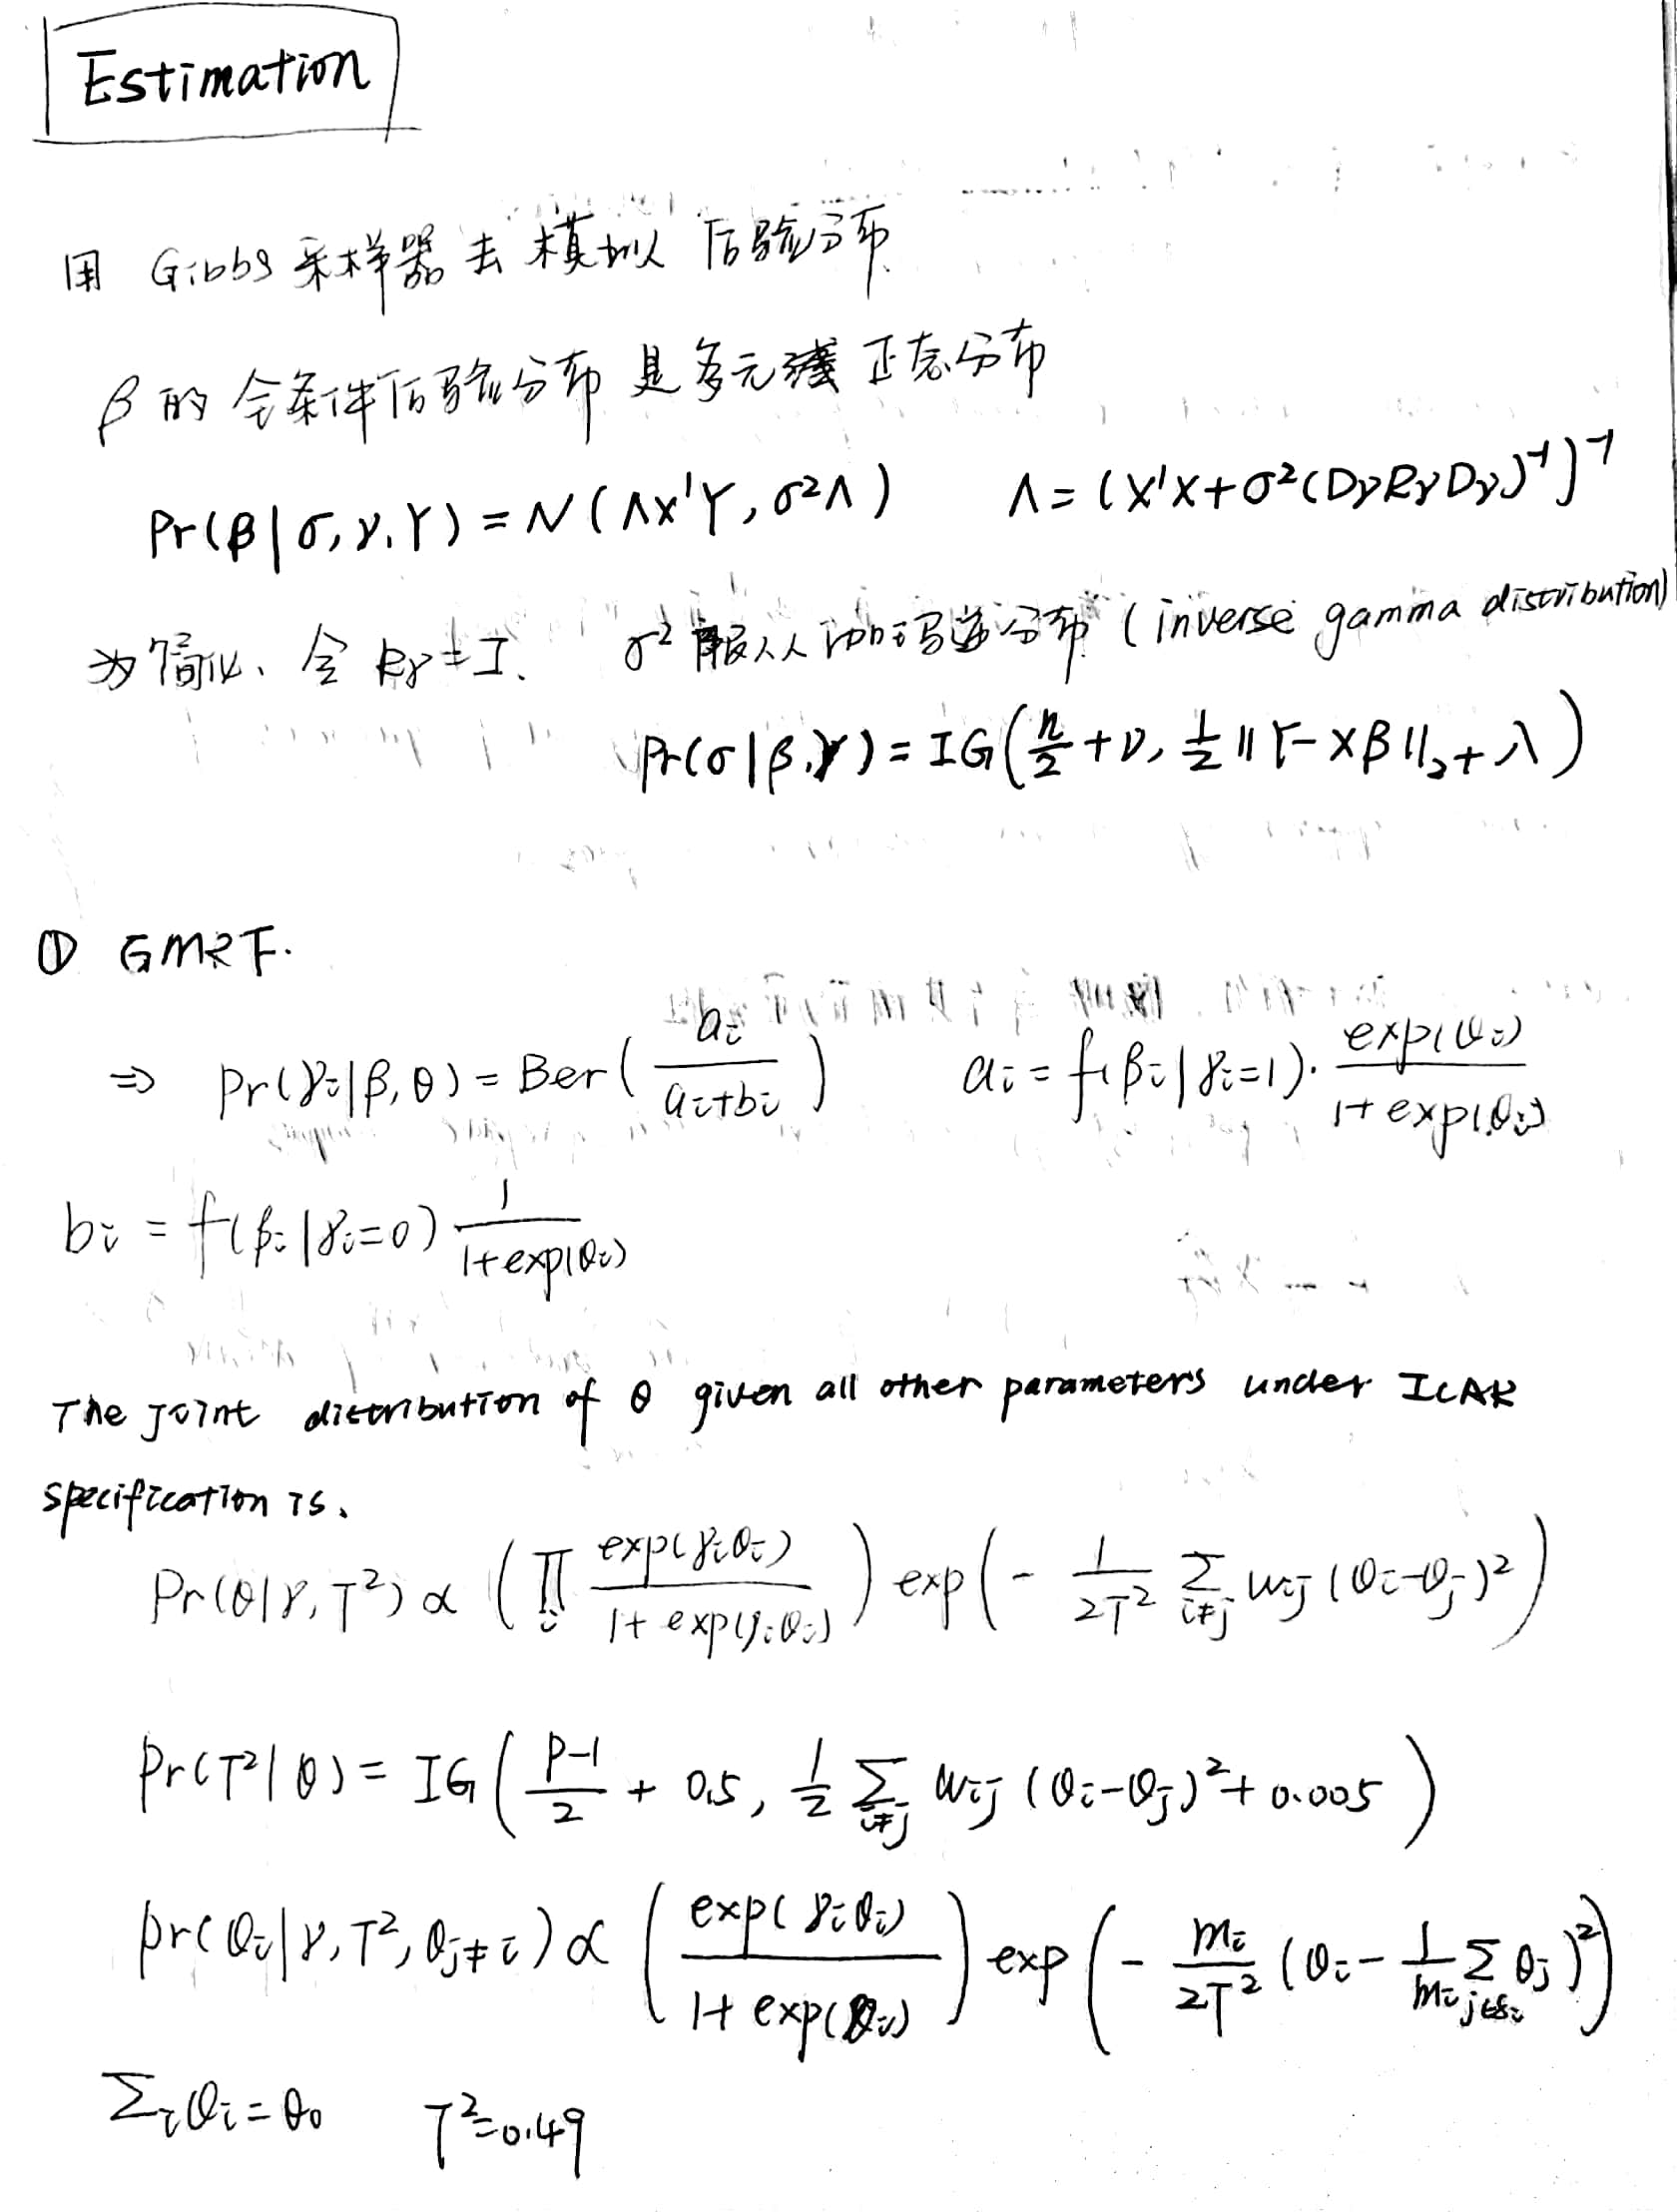 Estimation
用 Gibbs 采样器 去 模拟 后验分布
β 的 全条件后验分布 是 多元 正态分布
Pr(β|σ,γ,Y) = N(ΛX'Y, σ²Λ) Λ = (X'X+σ²(DγRγDγ)⁻¹)⁻¹
为简化、令 Rγ=I. σ² 服从 逆分布 (inverse gamma distribution)
Pr(σ|β,Y) = IG(n/2 + ν, 1/2 ||Y-Xβ||₂ + λ)
① GMRF.
⇒ Pr(γi|β,θ) = Ber(ai/(ai+bi)) ai = f(βi|γi=1)·exp(θi)/(1+exp(θi))
bi = f(βi|γi=0) 1/(1+exp(θi))
The joint distribution of θ given all other parameters under ICAR
specification is.
Pr(θ|γ,T²) ∝ (∏i exp(γiθi)/(1+exp(γiθi))) exp(-1/(2T²) Σi≠j wij(θi-θj)²)
Pr(T²|θ) = IG((p-1)/2 + 0.5, 1/2 Σi≠j wij(θi-θj)²+0.005)
Pr(θi|γ,T²,θj≠i) ∝ (exp(γiθi)/(1+exp(θi))) exp(-mi/(2T²) (θi - 1/mi Σj∈si θj)²)
Σiθi=θ₀ T²=0.49